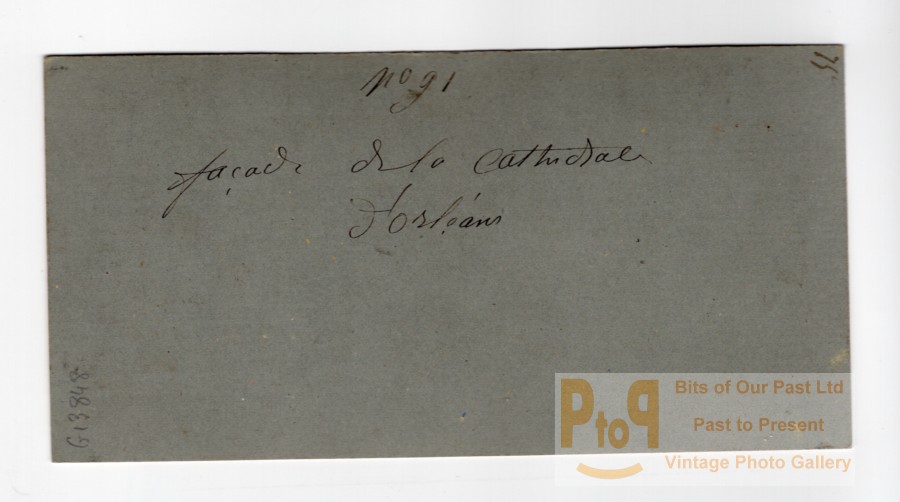 no 91
façade de la cathedrale
d'Orléans
G13848
PtoP
Bits of Our Past Ltd
Past to Present
Vintage Photo Gallery